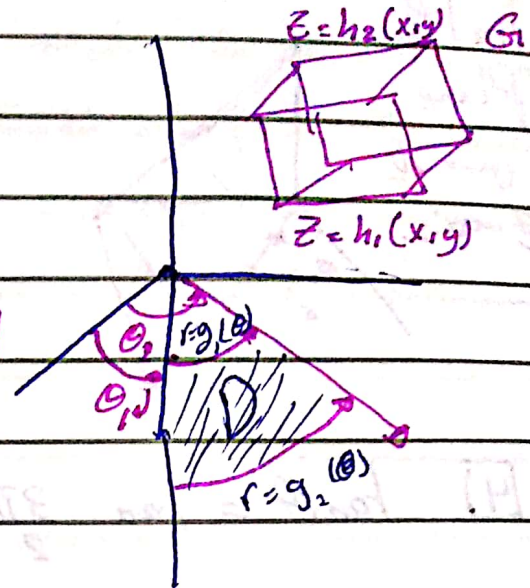 Z=h₂(x,y) G
Z=h₁(x,y)
θ₂
r=g₁(θ)
θ₁
D
r=g₂(θ)